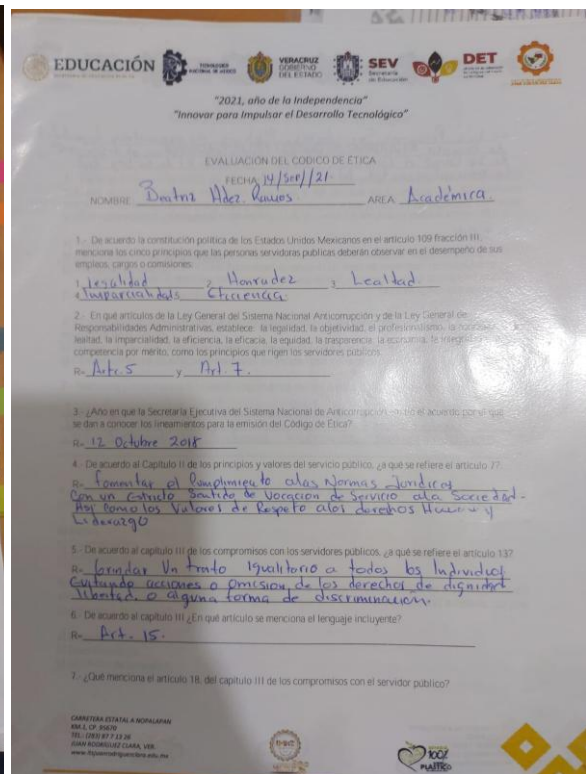 EDUCACIÓN
TECNOLÓGICO NACIONAL DE MÉXICO
VERACRUZ
GOBIERNO
DEL ESTADO
SEV
Secretaría
de Educación
DET
"2021, año de la Independencia"
"Innovar para Impulsar el Desarrollo Tecnológico"
EVALUACIÓN DEL CODIGO DE ÉTICA
FECHA 14/Sep/21
NOMBRE Beatriz Hdez. Ramos AREA Académica.
1.- De acuerdo la constitución política de los Estados Unidos Mexicanos en el artículo 109 fracción III,
menciona los cinco principios que las personas servidoras públicas deberán observar en el desempeño de sus
empleos, cargos o comisiones:
1 Legalidad 2 Honradez 3 Lealtad.
4 Imparcialidad 5 Eficiencia
2.- En qué artículos de la Ley General del Sistema Nacional Anticorrupción y de la Ley General de
Responsabilidades Administrativas, establece: la legalidad, la objetividad, el profesionalismo, la
lealtad, la imparcialidad, la eficiencia, la eficacia, la equidad, la trasparencia, la economía, la
competencia por mérito, como los principios que rigen los servidores públicos.
R= Artc. 5 y Art. 7.
3.- ¿Año en que la Secretaría Ejecutiva del Sistema Nacional de Anticorrupción, el acuerdo por el que
se dan a conocer los lineamientos para la emisión del Código de Ética?
R= 12 Octubre 2018
4.- De acuerdo al Capítulo II de los principios y valores del servicio público, ¿a qué se refiere el artículo 7?
R= fomentar el Cumplimiento alas Normas Jurídicas
Con un Estricto Sentido de Vocación de Servicio ala Sociedad.
Asi como los Valores de Respeto alos derechos y
Liderazgo
5.- De acuerdo al capítulo III de los compromisos con los servidores públicos, ¿a qué se refiere el artículo 13?
R= brindar Un trato Igualitario a todos los Individuos
Evitando acciones o Omision de los derechos de dignidad
libertad. o alguna forma de discriminación.
6.- De acuerdo al capítulo III ¿En qué artículo se menciona el lenguaje incluyente?
R= Art. 15.
7.- ¿Qué menciona el artículo 18, del capítulo III de los compromisos con el servidor público?
CARRETERA ESTATAL A NOPALAPAN
KM.1, CP. 95670
TEL.: (283) 87 7 13 26
JUAN RODRÍGUEZ CLARA, VER.
www.itsjuanrodriguezclara.edu.mx
100%
PLÁSTICO